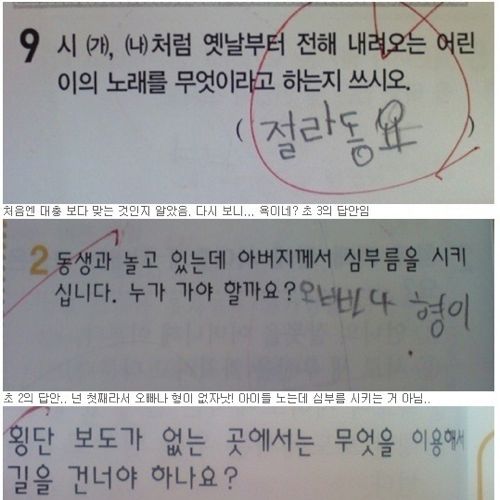 9 시 (가), (나)처럼 옛날부터 전해 내려오는 어린
이의 노래를 무엇이라고 하는지 쓰시오.
( 절라동요 )
처음엔 대충 보다 맞는 것인지 알았음. 다시 보니... 욕이네? 초 3의 답안임
2 동생과 놀고 있는데 아버지께서 심부름을 시키
십니다. 누가 가야 할까요? 오빠나 형이
초 2의 답안.. 넌 첫째라서 오빠나 형이 없자낫! 아이들 노는데 심부름 시키는 거 아님..
횡단 보도가 없는 곳에서는 무엇을 이용해서
길을 건너야 하나요?